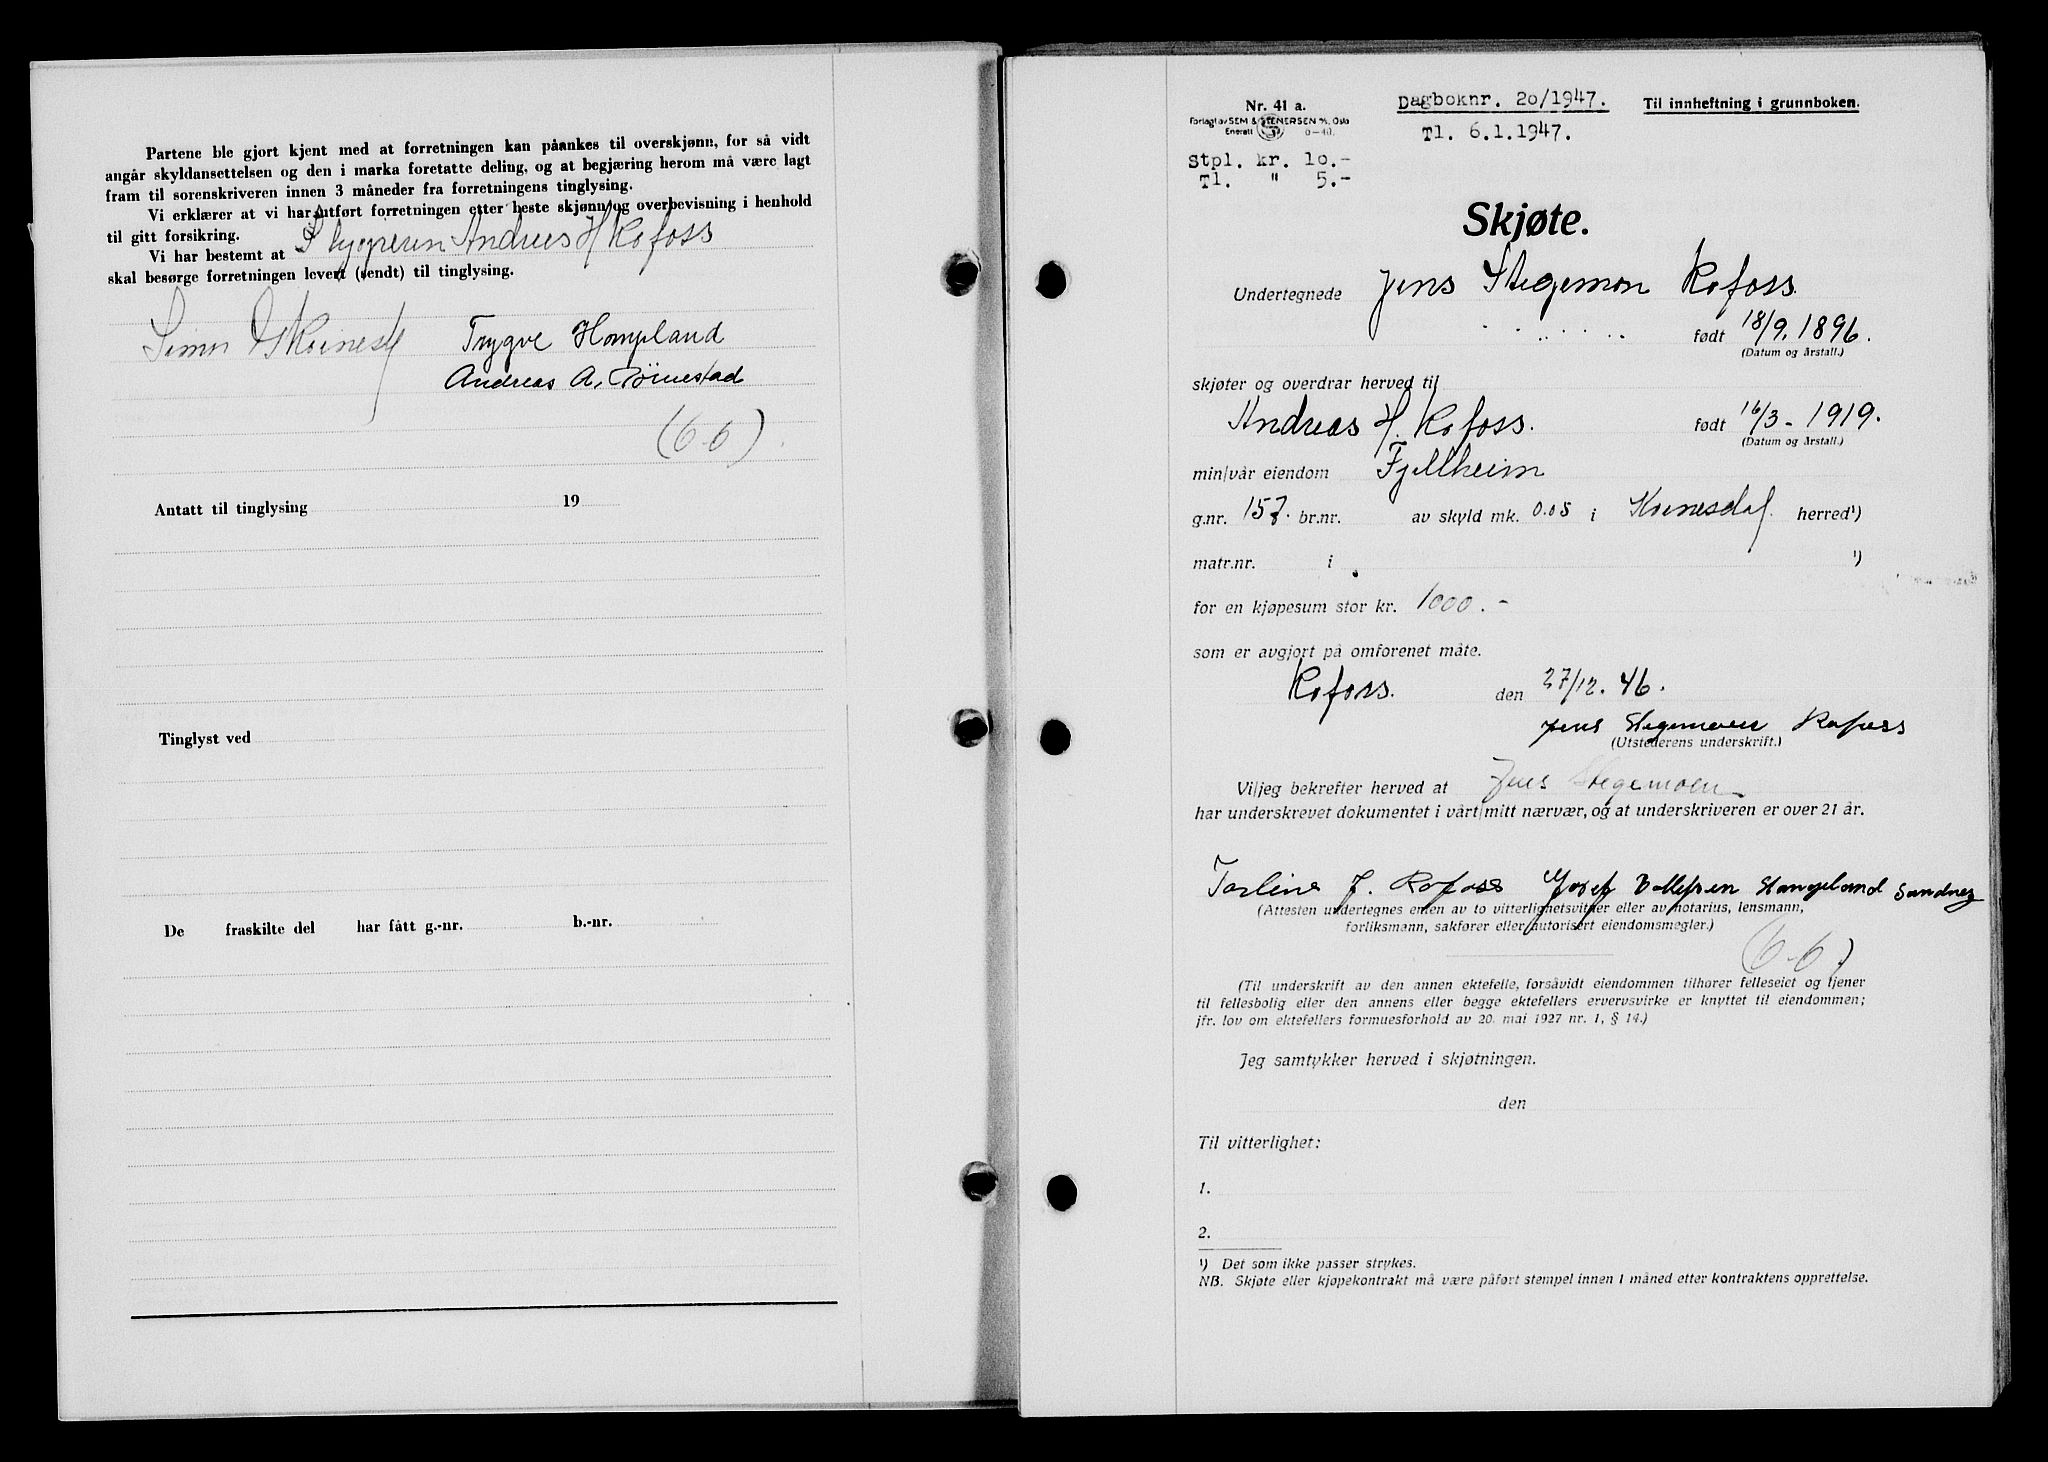 Partene ble gjort kjent med at forretningen kan påankes til overskjønn, for så vidt
angår skyldansettelsen og den i marka foretatte deling, og at begjæring herom må være lagt
fram til sorenskriveren innen 3 måneder fra forretningens tinglysing.
Vi erklærer at vi har utført forretningen etter beste skjønn og overbevisning i henhold
til gitt forsikring.
Vi har bestemt at Andreas H Kofoss
skal besørge forretningen levert (sendt) til tinglysing.
Trygve Hompland
Andreas A.
(6-6)
Antatt til tinglysing 19
Tinglyst ved
De fraskilte del har fått g.-nr. b.-nr.
Nr. 41 a.
Forlagt av SEM & STENERSEN A/S, Oslo
Enerett 6-40.
Dagboknr. 20/1947.
Tl. 6.1.1947.
Til innheftning i grunnboken.
Stpl. kr. 10.-
Tl. " 5.-
Skjøte.
Undertegnede Jens Stegemon Kofoss.
født 18/9. 1896.
(Datum og årstall.)
skjøter og overdrar herved til
Andreas H. Kofoss. født 16/3 - 1919.
(Datum og årstall.)
min/vår eiendom Fjellheim
g.nr. 157. br.nr. av skyld mk. 0.05 i Kvinesdal herred¹)
matr.nr. i ¹)
for en kjøpesum stor kr. 1000.-
som er avgjort på omforenet måte.
Kofoss. den 27/12. 46.
Jens Stegemoen Kofoss
(Utstederens underskrift.)
Vi/jeg bekrefter herved at Jens Stegemoen
har underskrevet dokumentet i vårt/mitt nærvær, og at underskriveren er over 21 år.
Torline J. Kofoss Josef Stangeland Sandnes
(Attesten undertegnes enten av to vitterlighetsvitner eller av notarius, lensmann,
forliksmann, sakfører eller autorisert eiendomsmegler.)
(6-6)
(Til underskrift av den annen ektefelle, forsåvidt eiendommen tilhører felleseiet og tjener
til fellesbolig eller den annens eller begge ektefellers ervervsvirke er knyttet til eiendommen;
jfr. lov om ektefellers formuesforhold av 20. mai 1927 nr. 1, § 14.)
Jeg samtykker herved i skjøtningen.
den
Til vitterlighet:
1.
2.
¹) Det som ikke passer strykes.
NB. Skjøte eller kjøpekontrakt må være påført stempel innen 1 måned etter kontraktens opprettelse.